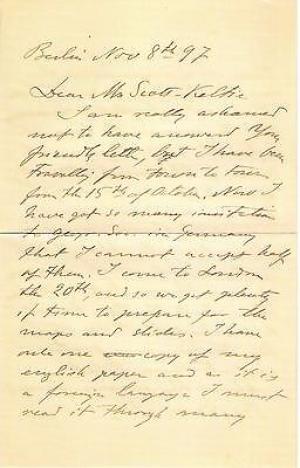 Berlin Nov 8th 97
Dear Mr Scott-Keltie
I am really ashamed
not to have answered Your
friendly letter, but I have been
travelling from town to town
from the 15th of October. Now I
have got so many invitation
to geogr. Soc. in Germany
that I cannot accept half
of them. I come to London
the 20th, and so we get plenty
of time to prepare for the
maps and slides. I have
only one copy of my
english paper and as it is
a foreign language I must
read it through many